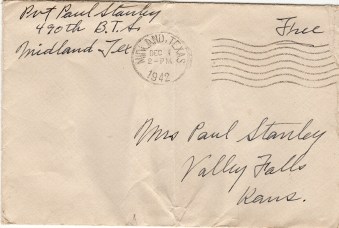 Pvt Paul Stanley
490th B.T.S.
Midland - Tex
MIDLAND, TEXAS
DEC 4
2-PM
1942
Free
Mrs Paul Stanley
Valley Falls
Kans.